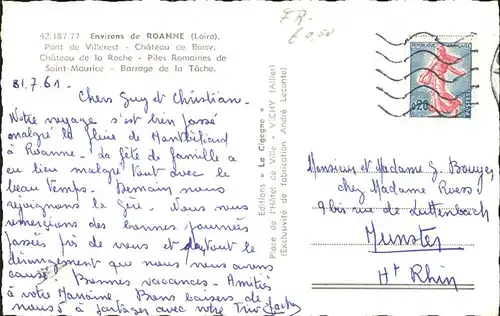 42.187.77 Environs de ROANNE (Loire).
Pont de Villerest - Château de Boisy.
Château de la Roche - Piles Romaines de
Saint-Maurice - Barrage de la Tâche.
FR.
31.7.61.
Chers Guy et Christian.
Notre voyage s'est bien passé
malgré la pluie de Montbéliard
à Roanne. La fête de famille a
eu lieu malgré tout avec le
beau temps. Demain nous
rejoignons la Gère. Nous vous
remercions des bonnes journées
passées près de vous et surtout le
dérangement que nous vous avons
causé. Bonnes vacances. Amitiés
à votre Marraine. Bons baisers de
nous 3 à partager avec votre Jacky
Editions « La Cigogne »
Place de l'Hôtel de Ville - VICHY (Allier)
(Exclusivité de fabrication André Leconte)
REPUBLIQUE FRANÇAISE
0,20
Monsieur et Madame G. Bouyer
chez Madame Ruess
9 bis rue de Luttenbach
Munster
Ht Rhin